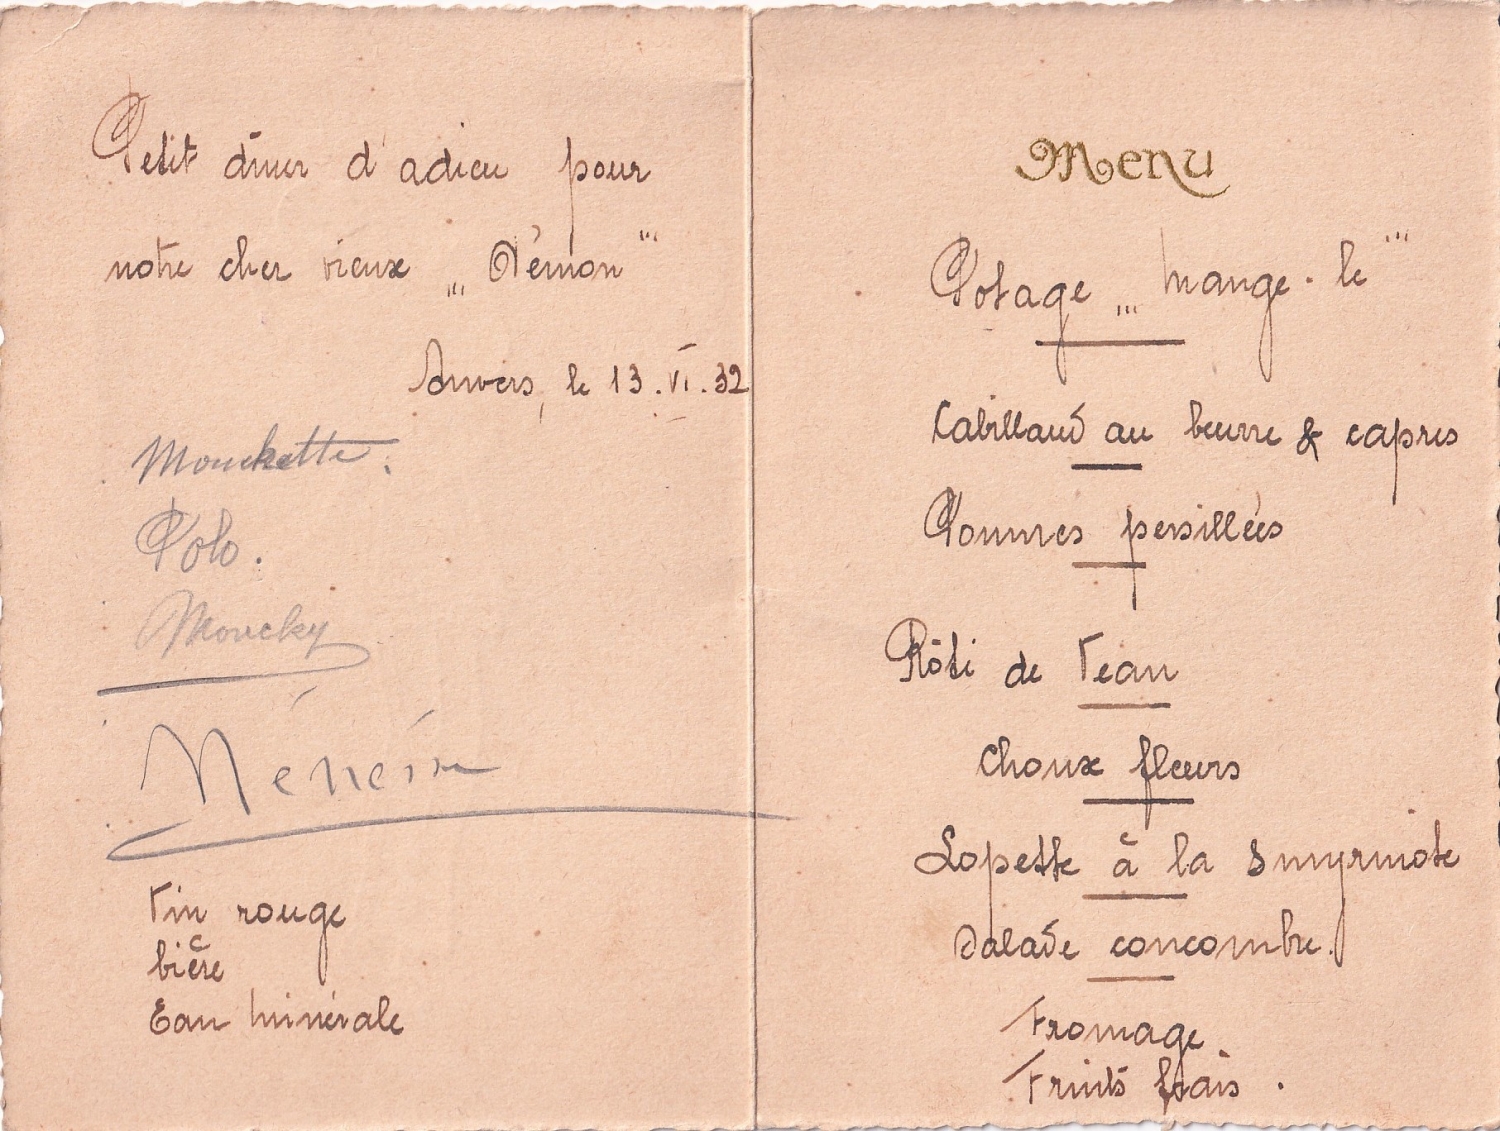 Petit dîner d'adieu pour
notre cher vieux „Démon"
Anvers, le 13.VI.32
Mouchette.
Polo.
Moucky
Vin rouge
bière
Eau minérale
Menu
Potage „Mange-le"
Cabillaud au beurre & capres
Pommes persillées
Rôti de Veau
Choux fleurs
Lopette à la Smyrniote
Salade concombre.
Fromage
Fruits frais.